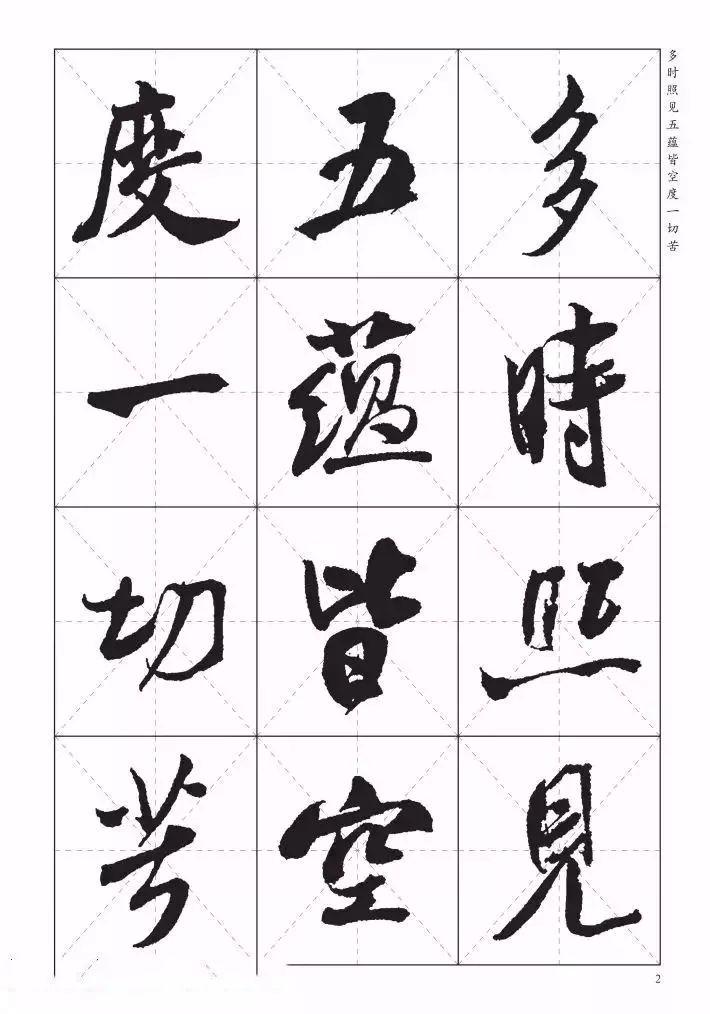 多時照見
五蘊皆空
度一切苦
多时照见五蕴皆空度一切苦
2